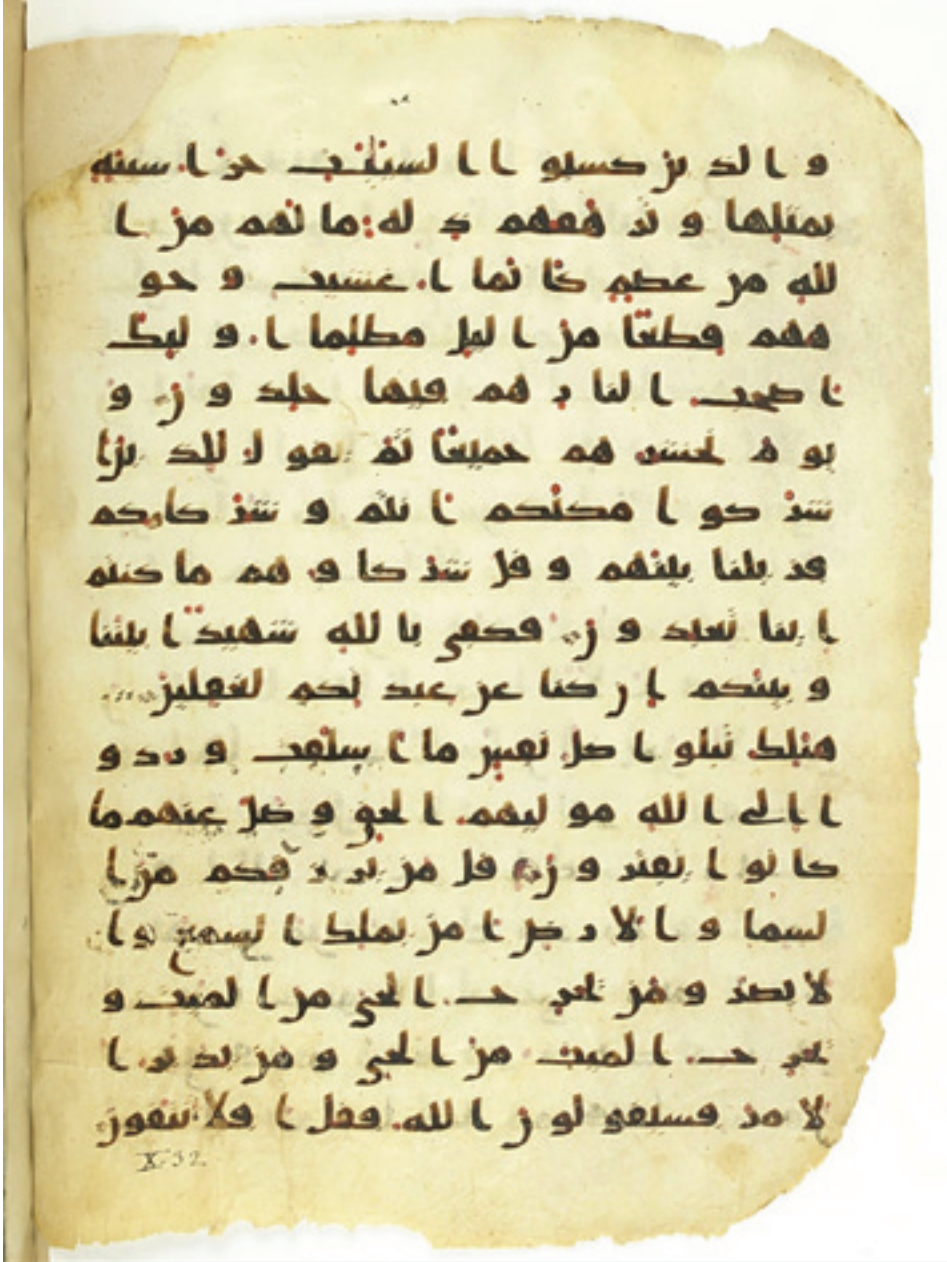 والذين كسبوا السيئت جزا سيئة
بمثلها وترهقهم ذلة ما لهم من ا
لله من عصم كانما اغشيت وجو
ههم قطعا من اليل مظلما اوليك
اصحب النار هم فيها خلدون و
يوم نحشرهم جميعا ثم نقول للذين ا
شركوا مكنكم انتم وشركاوكم
فزيلنا بينهم وقل شركاوهم ما كنتم
ايانا تعبدون فكفى بالله شهيدا بيننا
وبينكم ان كنا عن عبدتكم لغفلين
هنلك تبلوا كل نفس ما اسلفت وردو
ا الى الله موليهم الحق وضل عنهم ما
كانوا يفترون قل من يرزقكم من ا
لسما والارض امن يملك السمع وا
لابصر ومن يخرج الحي من الميت و
يخرج الميت من الحي ومن يدبر ا
لامر فسيقولون الله فقل افلا تتقون
X.32